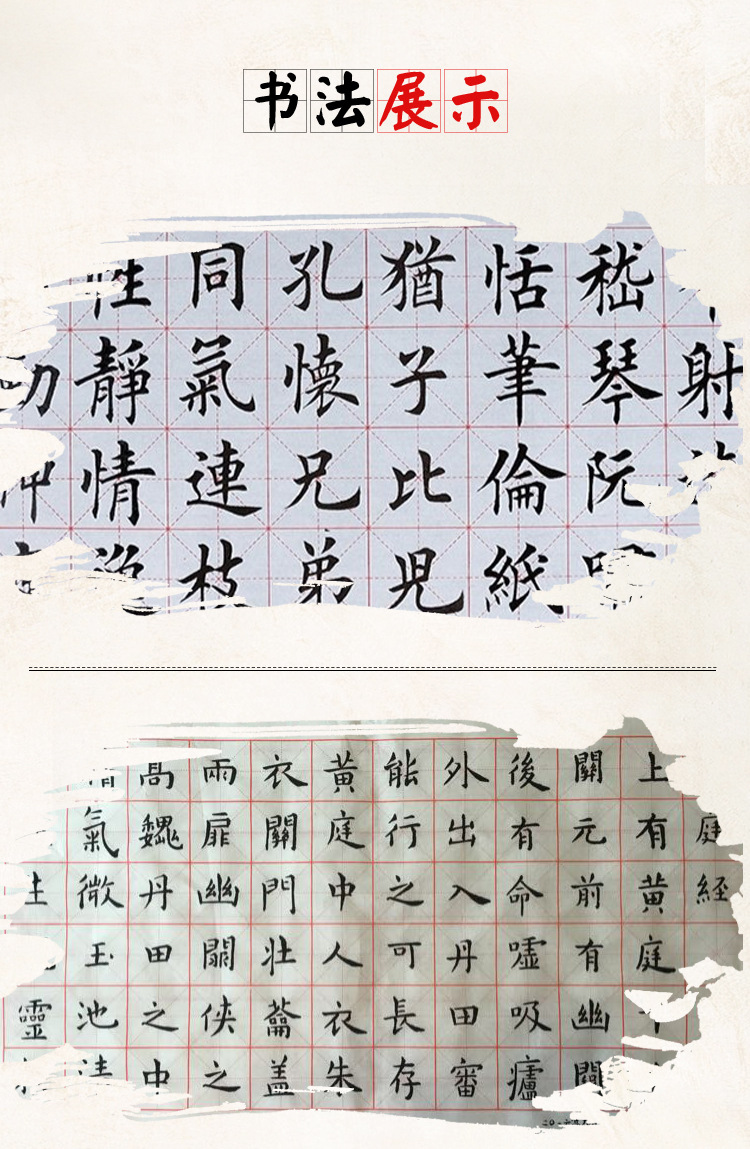 书法展示
射
嵇琴阮
恬筆倫紙
猶子比兒
孔懷兄弟
同氣連枝
性靜情逸
庭経
上有黄庭
關元前有幽闕
後有命噓吸廬
外出入丹田審
能行之可長存
黄庭中人衣朱
衣關門壯籥蓋
兩扉幽闕俠之
高巍丹田之中
氣微玉池清
靈